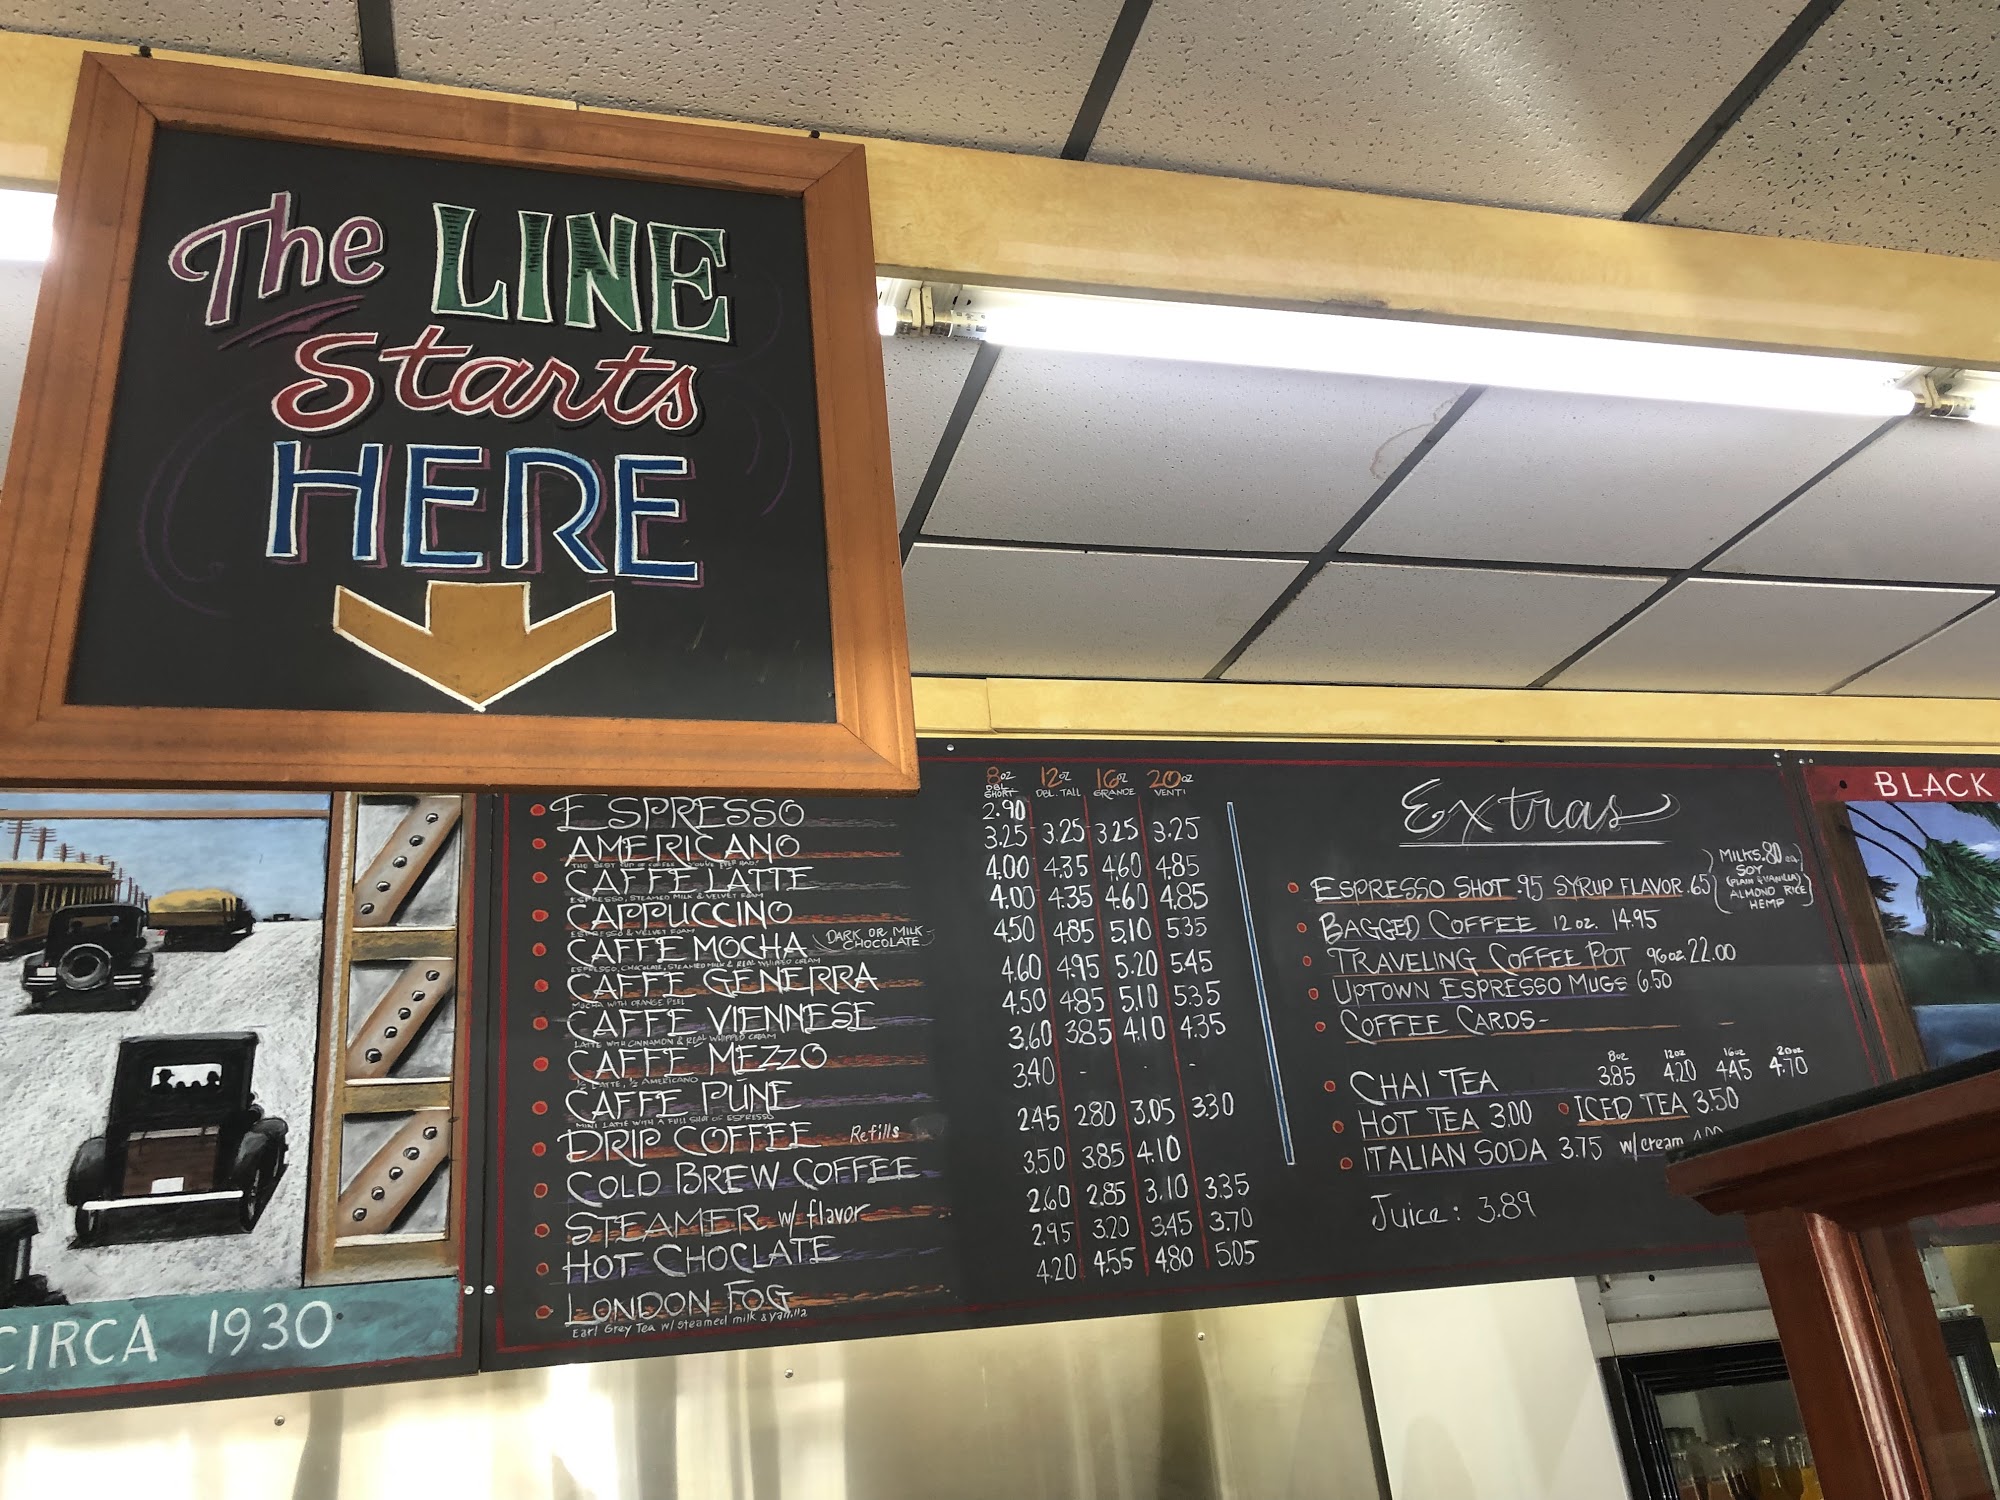 The LINE
Starts
HERE
CIRCA 1930
8oz 12oz 16oz 20oz
DBL. SHORT DBL. TALL GRANDE VENTI
ESPRESSO 2.90
AMERICANO 3.25 3.25 3.25 3.25
THE BEST CUP OF COFFEE YOU'VE EVER HAD!
CAFFE LATTE 4.00 4.35 4.60 4.85
ESPRESSO, STEAMED MILK & VELVET FOAM
CAPPUCCINO 4.00 4.35 4.60 4.85
ESPRESSO & VELVET FOAM
CAFFE MOCHA DARK OR MILK CHOCOLATE 4.50 4.85 5.10 5.35
ESPRESSO, CHOCOLATE, STEAMED MILK & REAL WHIPPED CREAM
CAFFE GENERRA 4.60 4.95 5.20 5.45
MOCHA WITH ORANGE PEEL
CAFFE VIENNESE 4.50 4.85 5.10 5.35
LATTE WITH CINNAMON & REAL WHIPPED CREAM
CAFFE MEZZO 3.60 3.85 4.10 4.35
½ LATTE, ½ AMERICANO
CAFFE PUNE 3.40 - - -
MINI LATTE WITH A FULL SHOT OF ESPRESSO
DRIP COFFEE Refills 2.45 2.80 3.05 3.30
COLD BREW COFFEE 3.50 3.85 4.10
STEAMER w/ flavor 2.60 2.85 3.10 3.35
HOT CHOCLATE 2.95 3.20 3.45 3.70
LONDON FOG 4.20 4.55 4.80 5.05
Earl Grey Tea w/ steamed milk & vanilla
Extras
ESPRESSO SHOT .95 SYRUP FLAVOR .65
MILKS .80 ea.
SOY
(PLAIN & VANILLA)
ALMOND RICE
HEMP
BAGGED COFFEE 12 oz. 14.95
TRAVELING COFFEE POT 96oz. 22.00
UPTOWN ESPRESSO MUGS 6.50
COFFEE CARDS-
8oz 12oz 16oz 20oz
CHAI TEA 3.85 4.20 4.45 4.70
HOT TEA 3.00 ICED TEA 3.50
ITALIAN SODA 3.75 w/cream
Juice: 3.89
BLACK